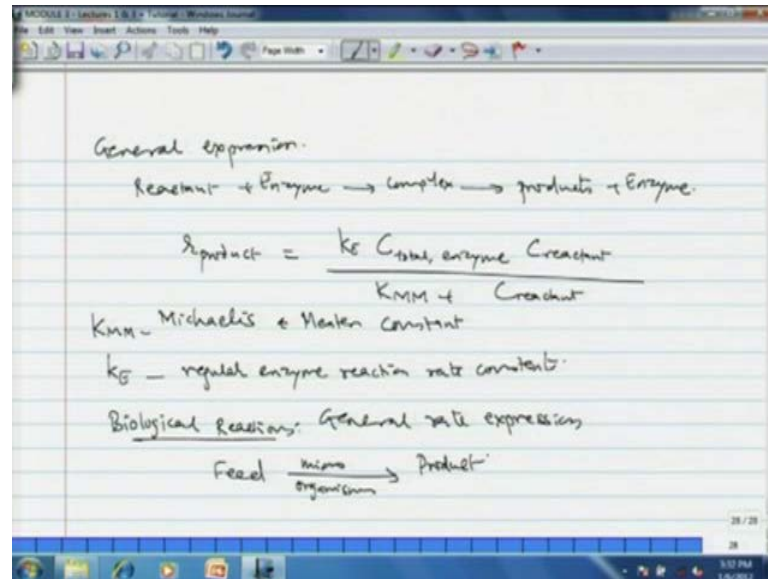 MODULE 3 - Lectures 1 & 3 + Tutorial - Windows Journal
File Edit View Insert Actions Tools Help
Page Width
General expression.
Reactant + Enzyme → complex → products + Enzyme.
r product = kE C total, enzyme C reactant
KMM + C reactant
KMM - Michaelis & Menten constant
kE - regular enzyme reaction rate constant.
Biological Reactions: General rate expression
Feed micro organisms → Product
28 / 28
28
3:32 PM